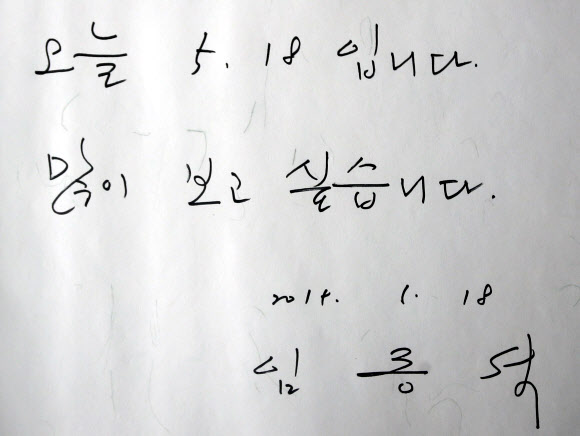 오늘 5. 18 입니다.
많이 보고 싶습니다.
2015. 1. 18
임 종 석